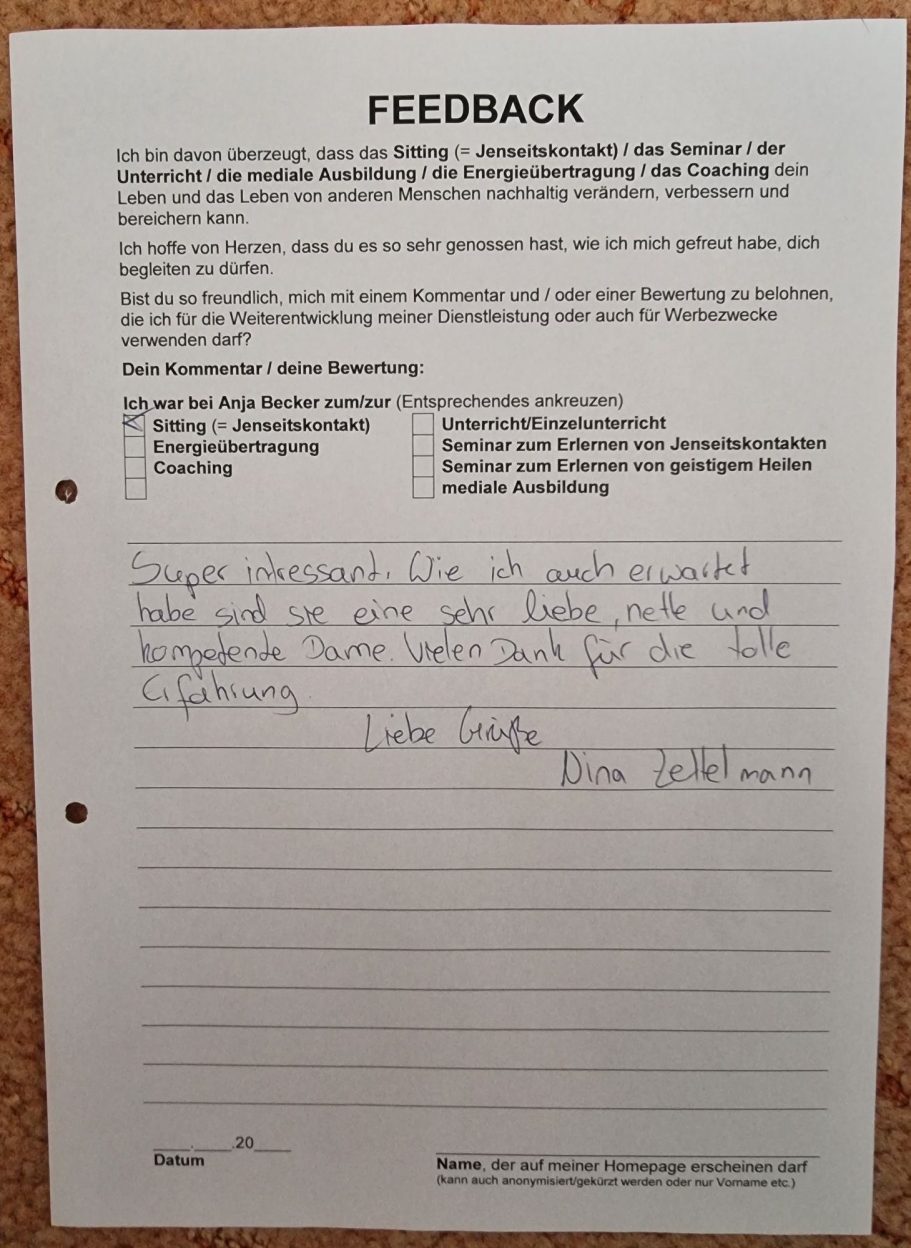 FEEDBACK
Ich bin davon überzeugt, dass das Sitting (= Jenseitskontakt) / das Seminar / der
Unterricht / die mediale Ausbildung / die Energieübertragung / das Coaching dein
Leben und das Leben von anderen Menschen nachhaltig verändern, verbessern und
bereichern kann.
Ich hoffe von Herzen, dass du es so sehr genossen hast, wie ich mich gefreut habe, dich
begleiten zu dürfen.
Bist du so freundlich, mich mit einem Kommentar und / oder einer Bewertung zu belohnen,
die ich für die Weiterentwicklung meiner Dienstleistung oder auch für Werbezwecke
verwenden darf?
Dein Kommentar / deine Bewertung:
Ich war bei Anja Becker zum/zur (Entsprechendes ankreuzen)
Sitting (= Jenseitskontakt)
Energieübertragung
Coaching
Unterricht/Einzelunterricht
Seminar zum Erlernen von Jenseitskontakten
Seminar zum Erlernen von geistigem Heilen
mediale Ausbildung
Super intressant. Wie ich auch erwartet
habe sind sie eine sehr liebe, nette und
kompetente Dame. Vielen Dank für die tolle
Erfahrung.
Liebe Grüße
Nina Zettelmann
____.____.20____
Datum
Name, der auf meiner Homepage erscheinen darf
(kann auch anonymisiert/gekürzt werden oder nur Vorname etc.)